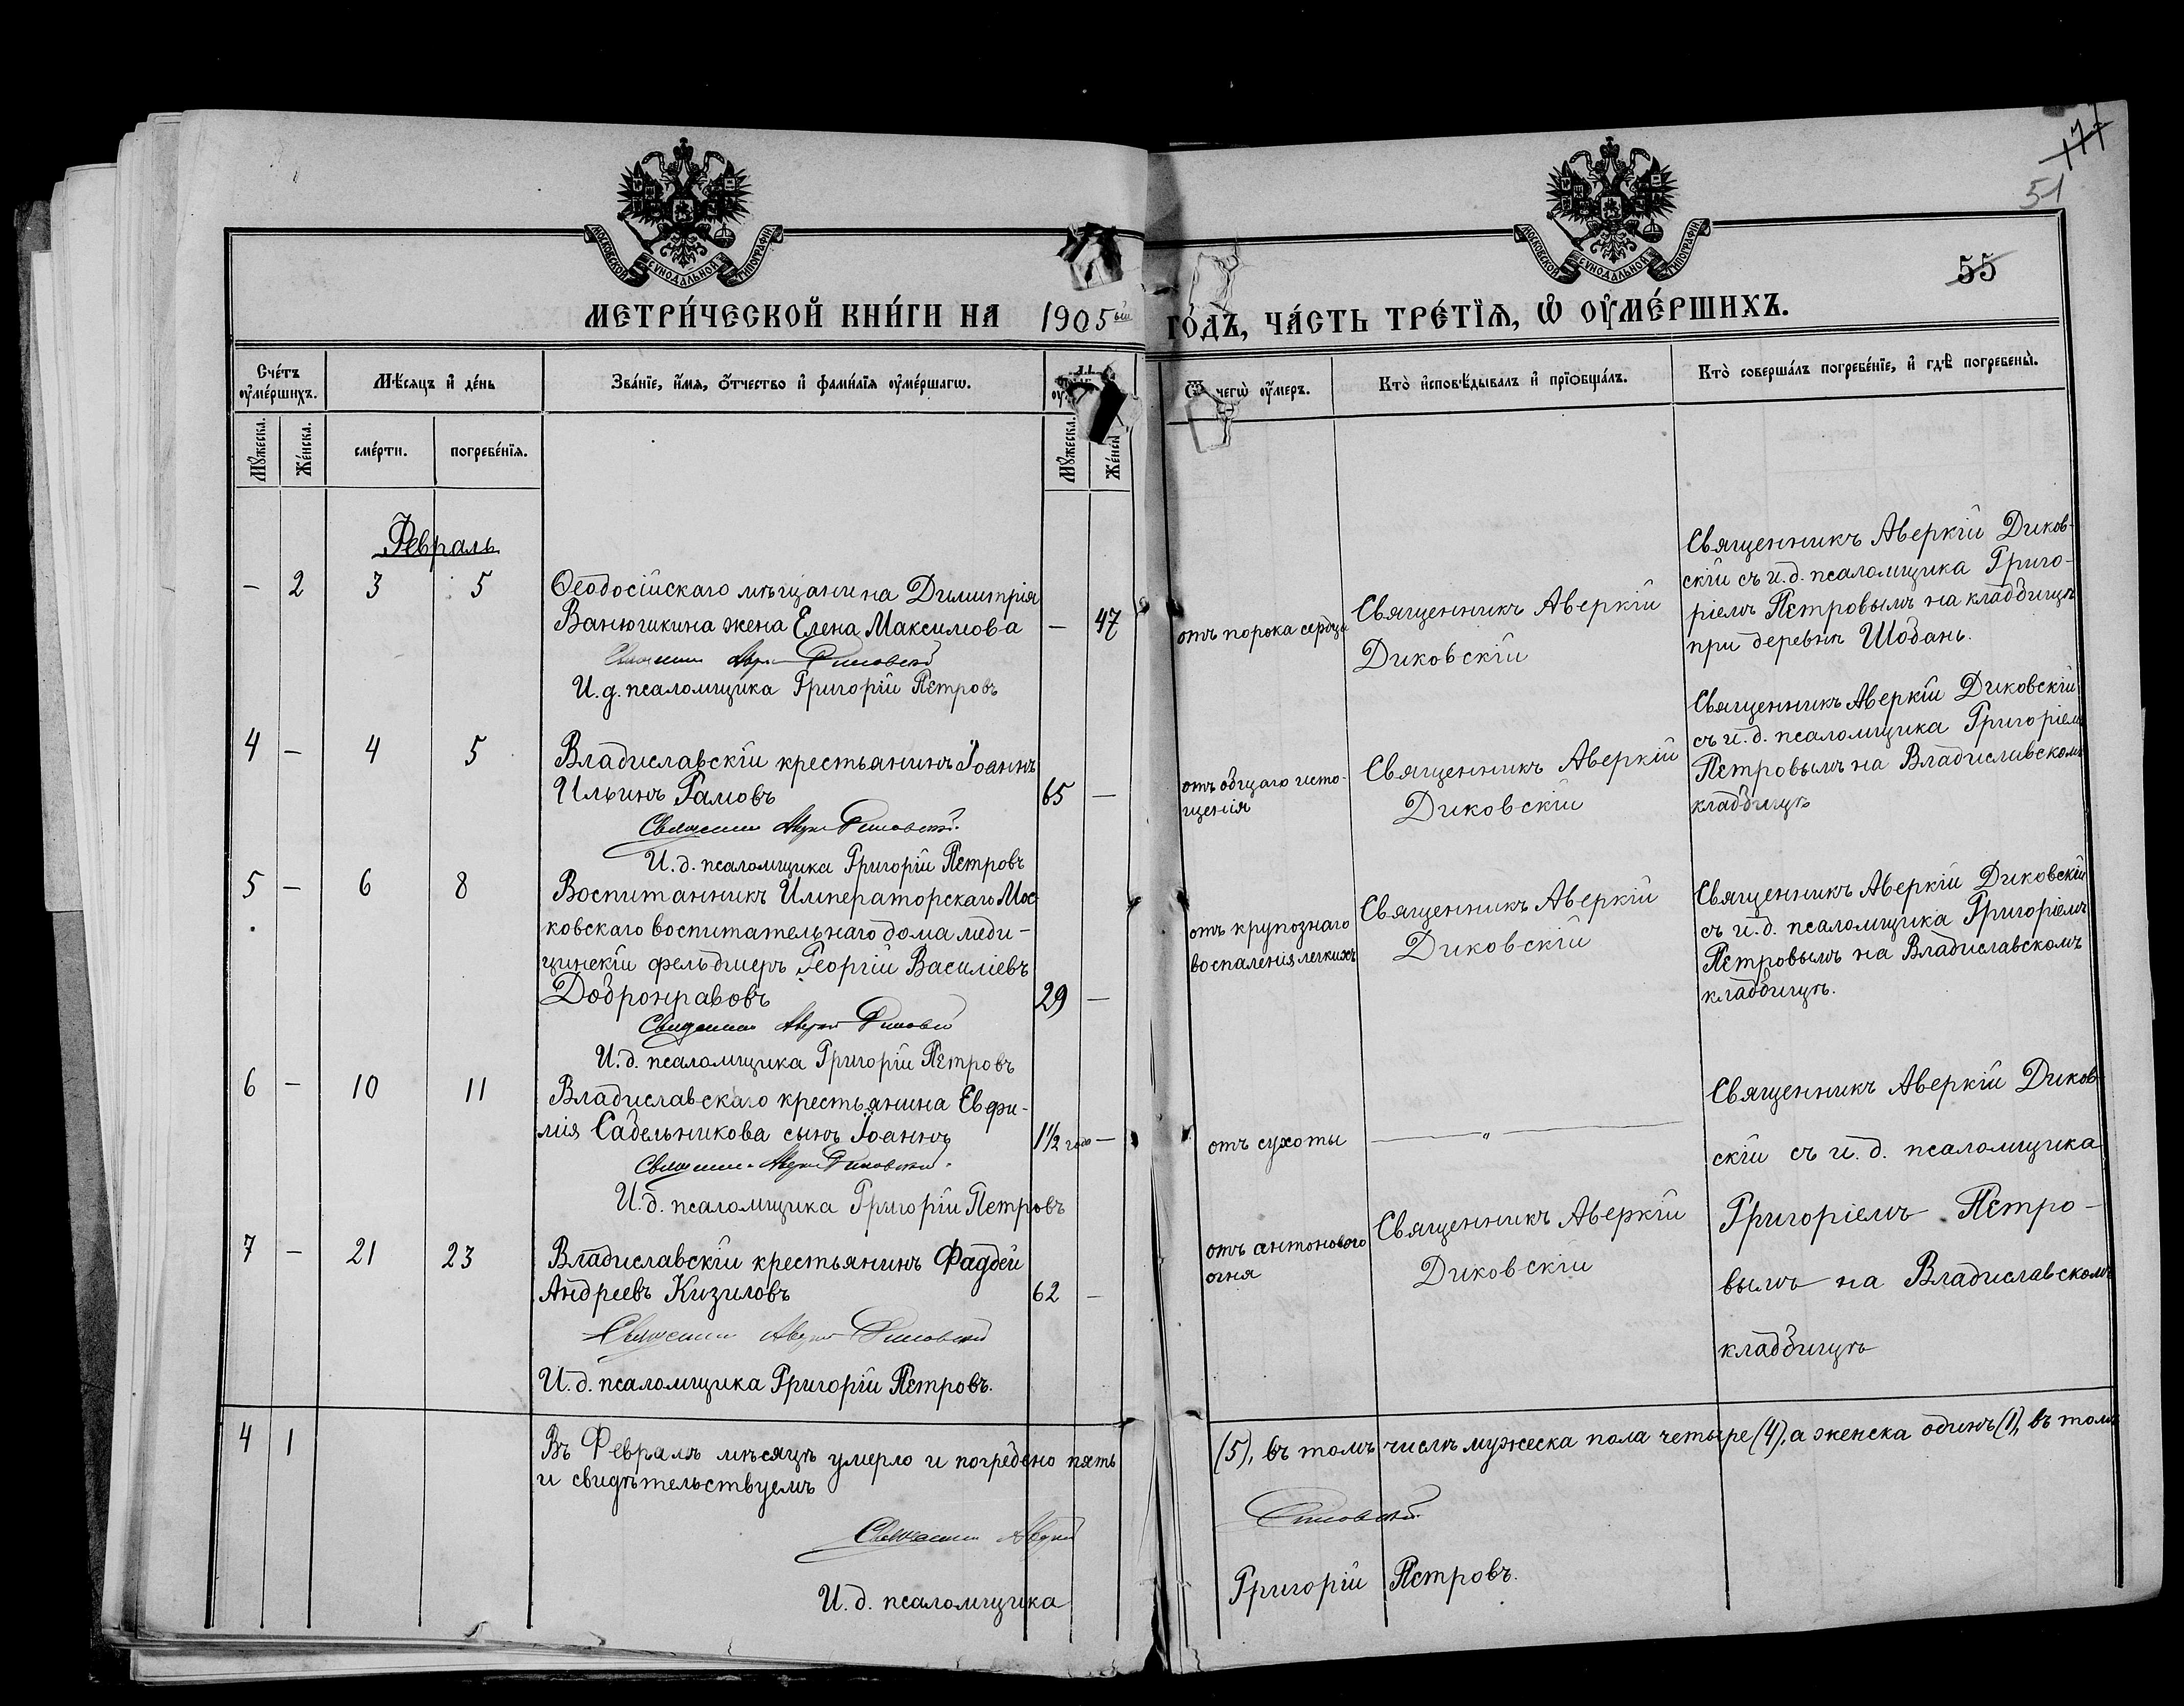 171
51
55
МОСКОВСКОЙ СУНОДАЛЬНОЙ ТИПОГРАФІИ
МОСКОВСКОЙ СУНОДАЛЬНОЙ ТИПОГРАФІИ
МЕТРИ́ЧЕСКОЙ КНИ́ГИ НА 1905ый ГО́ДЪ, ЧА́СТЬ ТРЕ́ТІѦ, Ѡ҆ ОУ҆МЕ́РШИХЪ.
Сче́тъ оу҆ме́ршихъ.
Мѣ́сяцъ и҆ де́нь
Зва́нїе, и҆́мѧ, ѻ҆́тчество и҆ фами́лїѧ оу҆ме́ршагѡ.
Ѿ чегѡ̀ оу҆́меръ.
Кто̀ и҆сповѣ́дывалъ и҆ прїѻбща́лъ.
Кто̀ соверша́лъ погребе́нїе, и҆ гдѣ̀ погребены̀.
Мꙋ́жеска.
Же́нска.
сме́рти.
погребе́нїѧ.
Мꙋ́жеска.
Февраль
– 2 3 5
Ѳеодосійскаго мѣщанина Димитрія
Ванюшкина жена Елена Максимова – 47
И.д. псаломщика Григорій Петровъ
отъ порока сердца
Священникъ Аверкій
Диковскій
Священникъ Аверкій Диков-
скій съ и.д. псаломщика Григо-
ріемъ Петровымъ на кладбищѣ
при деревнѣ Шобань.
4 – 4 5
Владиславскій крестьянинъ Іоаннъ
Ильинъ Рамовъ 65 –
Священникъ Аверкій Диковскій.
И.д. псаломщика Григорій Петровъ
отъ общаго исто-
щенія
Священникъ Аверкій
Диковскій
Священникъ Аверкій Диковскій
съ и.д. псаломщика Григоріемъ
Петровымъ на Владиславскомъ
кладбищѣ
5 – 6 8
Воспитанникъ Императорскаго Мос
ковскаго воспитательнаго дома меди-
цинскій фельдшеръ Георгій Василіевъ
Добронравовъ 29 –
И.д. псаломщика Григорій Петровъ
отъ крупознаго
воспаленія легкихъ
Священникъ Аверкій
Диковскій
Священникъ Аверкій Диковскій
съ и.д. псаломщика Григоріемъ
Петровымъ на Владиславскомъ
кладбищѣ.
6 – 10 11
Владиславскаго крестьянина Евфи-
мія Садельникова сынъ Іоаннъ 1½ года –
Священникъ Аверкій Диковскій.
И.д. псаломщика Григорій Петровъ
отъ сухоты
— „ —
Священникъ Аверкій Диков
скій съ и.д. псаломщика
Григоріемъ Петро-
вымъ на Владиславскомъ
кладбищѣ
7 – 21 23
Владиславскій крестьянинъ Фаддей
Андреевъ Кизиловъ 62 –
Священникъ Аверкій Диковскій
И.д. псаломщика Григорій Петровъ.
отъ антонового
огня
Священникъ Аверкій
Диковскій
4 1
Въ Февралѣ мѣсяцѣ умерло и погребено пять (5), въ томъ числѣ мужеска пола четыре (4), а женска одинъ (1), въ томъ
и свидѣтельствуемъ
Священникъ Аверкій Диковскій.
И.д. псаломщика Григорій Петровъ.